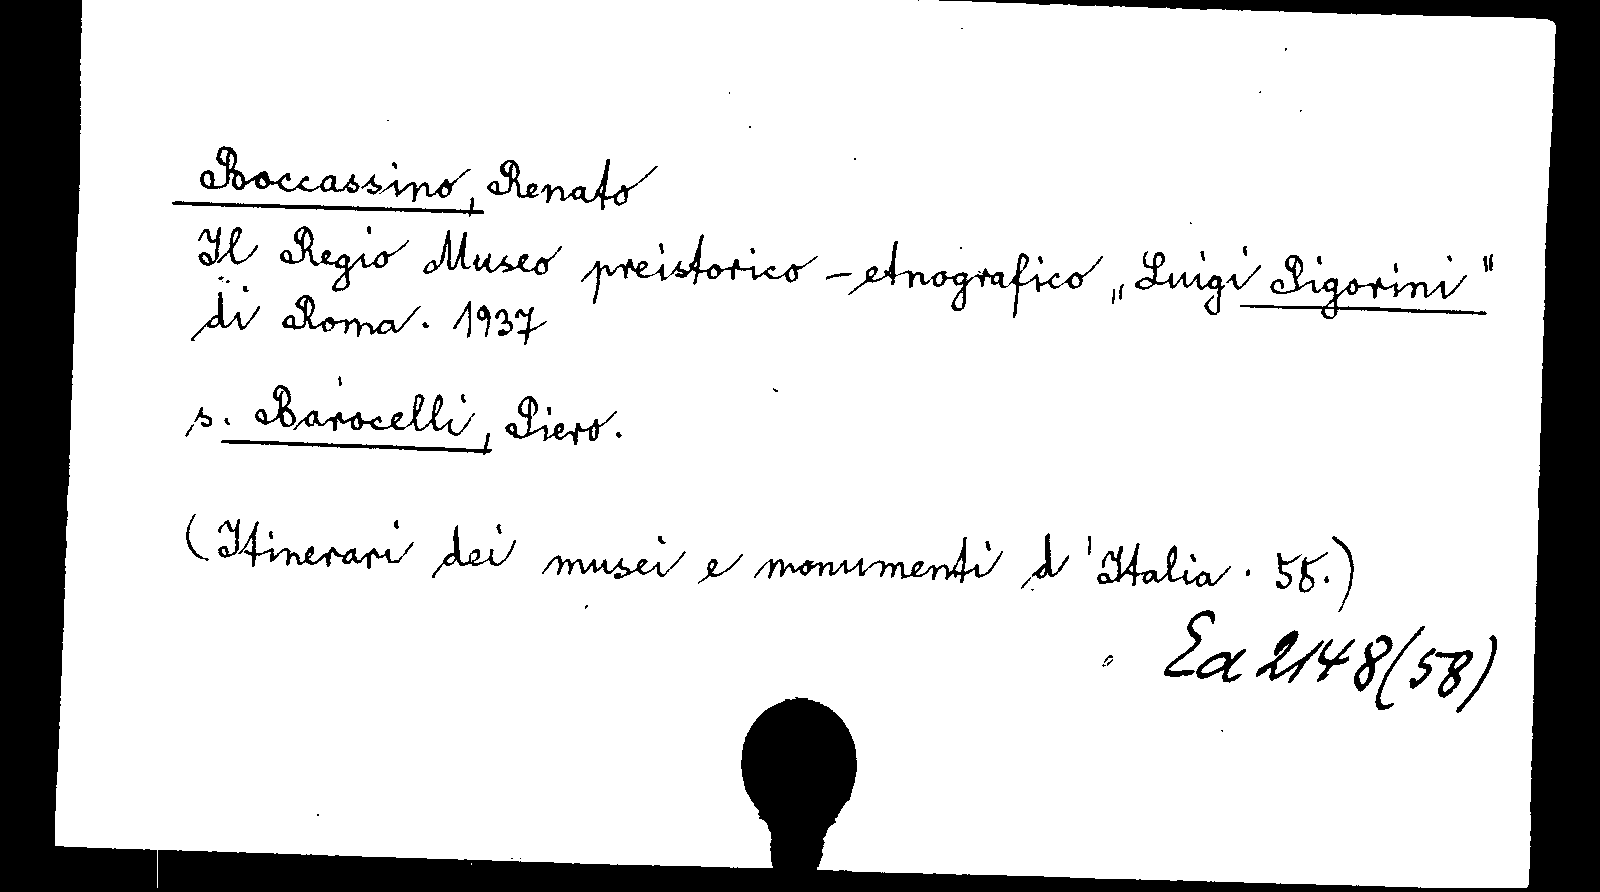 Boccassino, Renato
Il Regio Museo preistorico-etnografico „Luigi Pigorini"
di Roma. 1937
s. Barocelli, Piero.
(Itinerari dei musei e monumenti d'Italia. 58.)
Ea 2148(58)